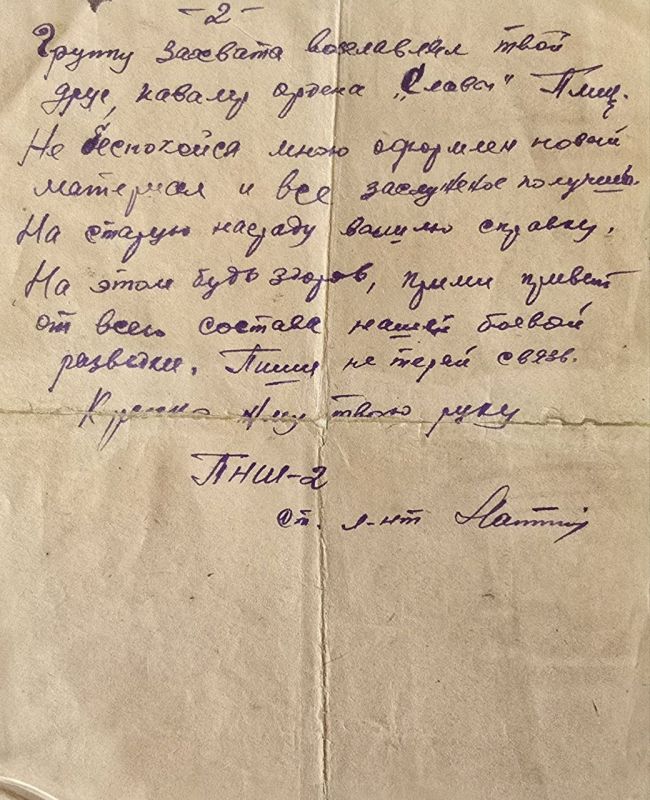 -2-
Группу захвата возглавлял твой
друг, кавалер ордена „Славы"
Не беспокойся мною оформлен новый
материал и все заслуженое получишь.
На старую награду вышлю справку.
На этом будь здоров, прими привет
от всего состава нашей боевой
разведки. Пиши не теряй связь.
Крепко жму твою руку
ПНШ-2
ст. л-нт